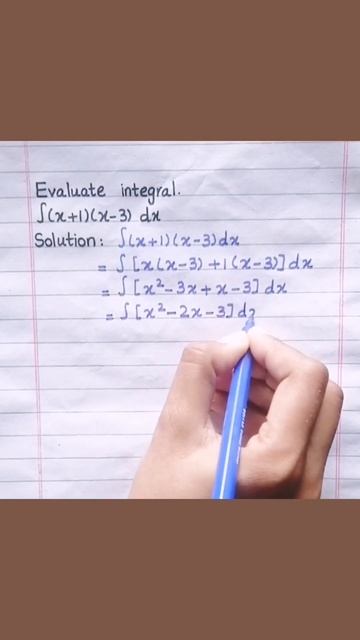 Evaluate integral.
∫(x+1)(x-3) dx
Solution: ∫(x+1)(x-3)dx
= ∫[x(x-3)+1(x-3)]dx
= ∫[x²-3x+x-3]dx
= ∫[x²-2x-3]d